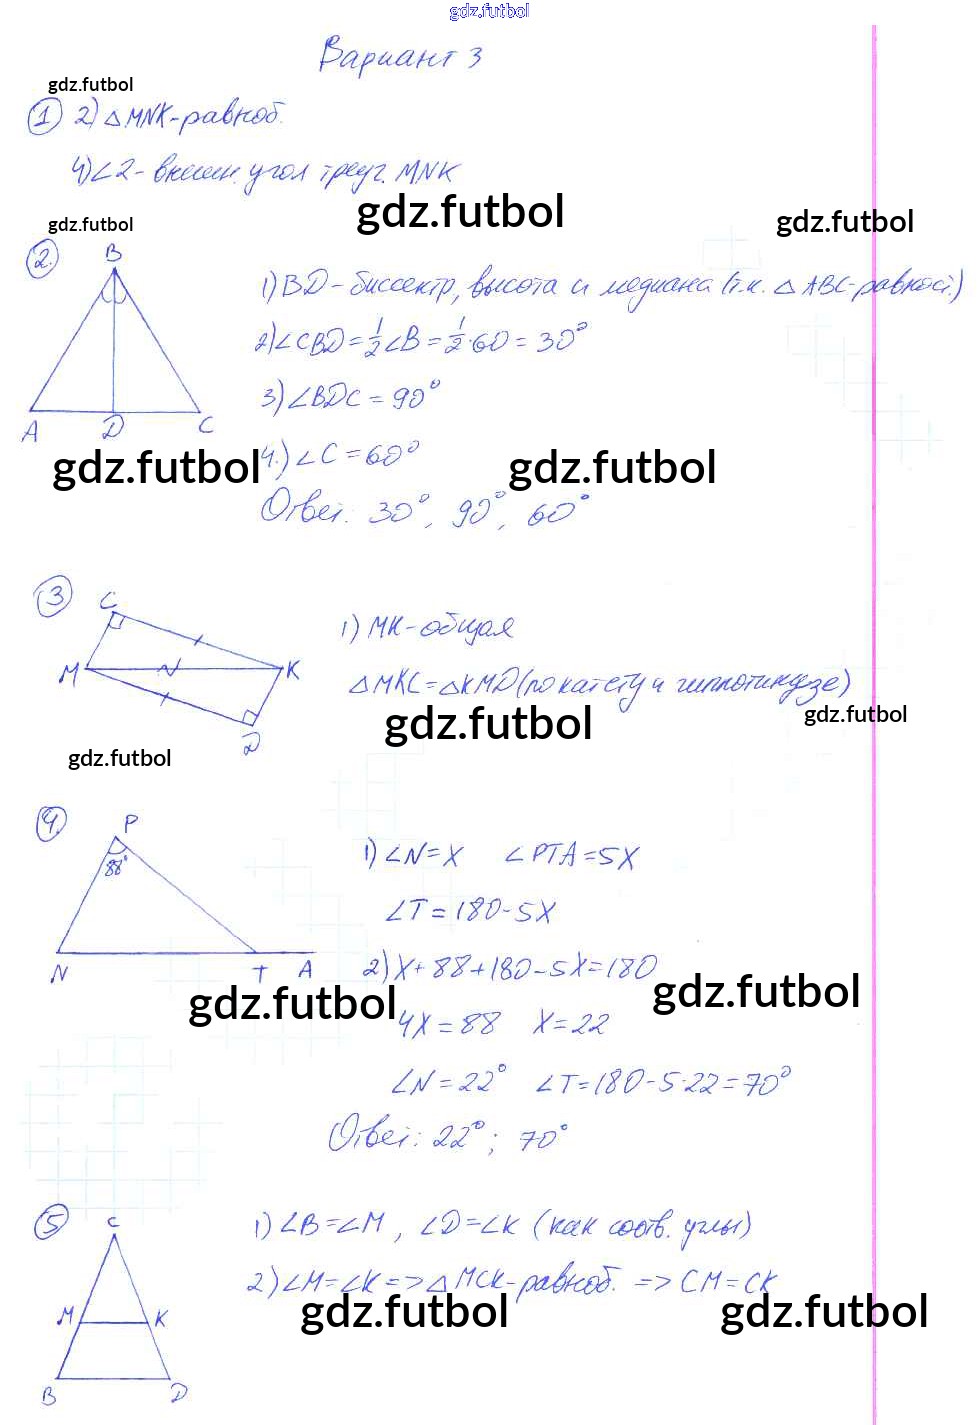 gdz.futbol
Вариант 3
gdz.futbol
① 2) △MNK-равноб.
4) ∠2 - внешн. угол треуг. MNK
gdz.futbol gdz.futbol
gdz.futbol
②. B
1) BD - биссектр, высота и медиана (т.к. △ABC-равност.)
2) ∠CBD = 1/2 ∠B = 1/2 · 60 = 30°
3) ∠BDC = 90°
A D C
4.) ∠C = 60°
gdz.futbol gdz.futbol
Ответ: 30°, 90°, 60°
③ C
1) MK - общая
M K
△MKC = △KMD (по катету и гиппотинузе)
gdz.futbol gdz.futbol
D
gdz.futbol
④. P
88°
1) ∠N = x ∠PTA = 5x
∠T = 180 - 5x
N T A
2) x + 88 + 180 - 5x = 180
gdz.futbol gdz.futbol
4x = 88 x = 22
∠N = 22° ∠T = 180 - 5·22 = 70°
Ответ: 22°; 70°
⑤ C
1) ∠B = ∠M, ∠D = ∠K (как соотв. углы)
2) ∠M = ∠K => △MCK-равноб. => CM = CK
M K
gdz.futbol gdz.futbol
B D